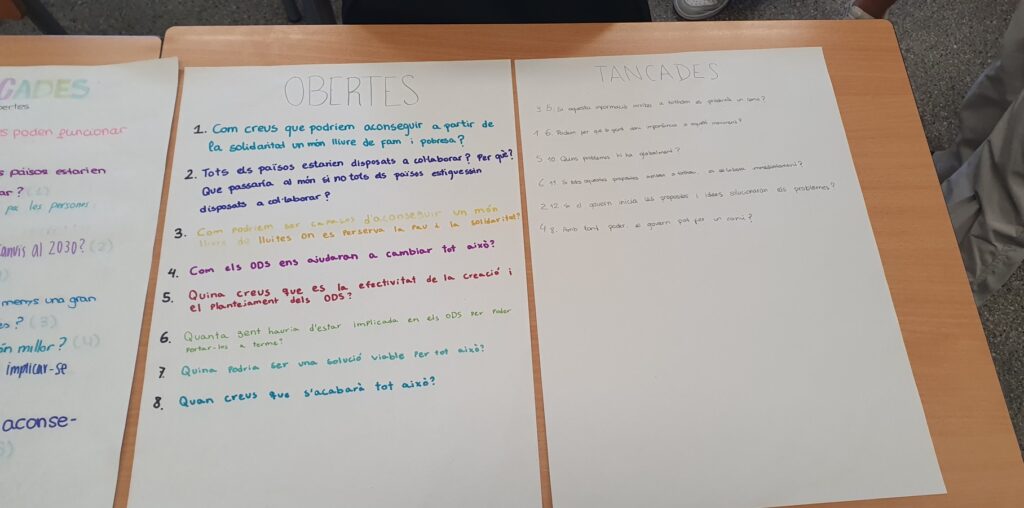 CADES
bertes
s poden funcionar
s països estarien
ar? (1)
pa les persones
canvis al 2030? (2)
menys una gran
es? (3)
ón millor? (4)
implicar-se
aconse-
OBERTES
1. Com creus que podriem aconseguir a partir de
la solidaritat un món lliure de fam i pobresa?
2. Tots els països estarien disposats a col·laborar? Per què?
Que passaria al món si no tots els països estiguessin
disposats a col·laborar?
3. Com podriem ser capaços d'aconseguir un món
lliure de lluites on es perserva la pau i la solidaritat?
4. Com els ODS ens ajudaran a cambiar tot això?
5. Quina creus que es la efectivitat de la creació i
el plantejament dels ODS?
6. Quanta gent hauria d'estar implicada en els ODS per poder
portar-los a terme?
7. Quina podria ser una solució viable per tot això?
8. Quan creus que s'acabarà tot això?
TANCADES
3 5. Si aquesta informació arribés a tothom es produiria un canvi?
1 6. Podem fer que la gent doni importància a aquests moviments?
5 10. Quins problemes hi ha globalment?
6 11. Si totes aquestes propostes a tothom, immediatament?
2 12. Si el govern inicia les propostes i idees solucionaran els problemes?
4 8. Amb tant poder, el govern pot fer un canvi?